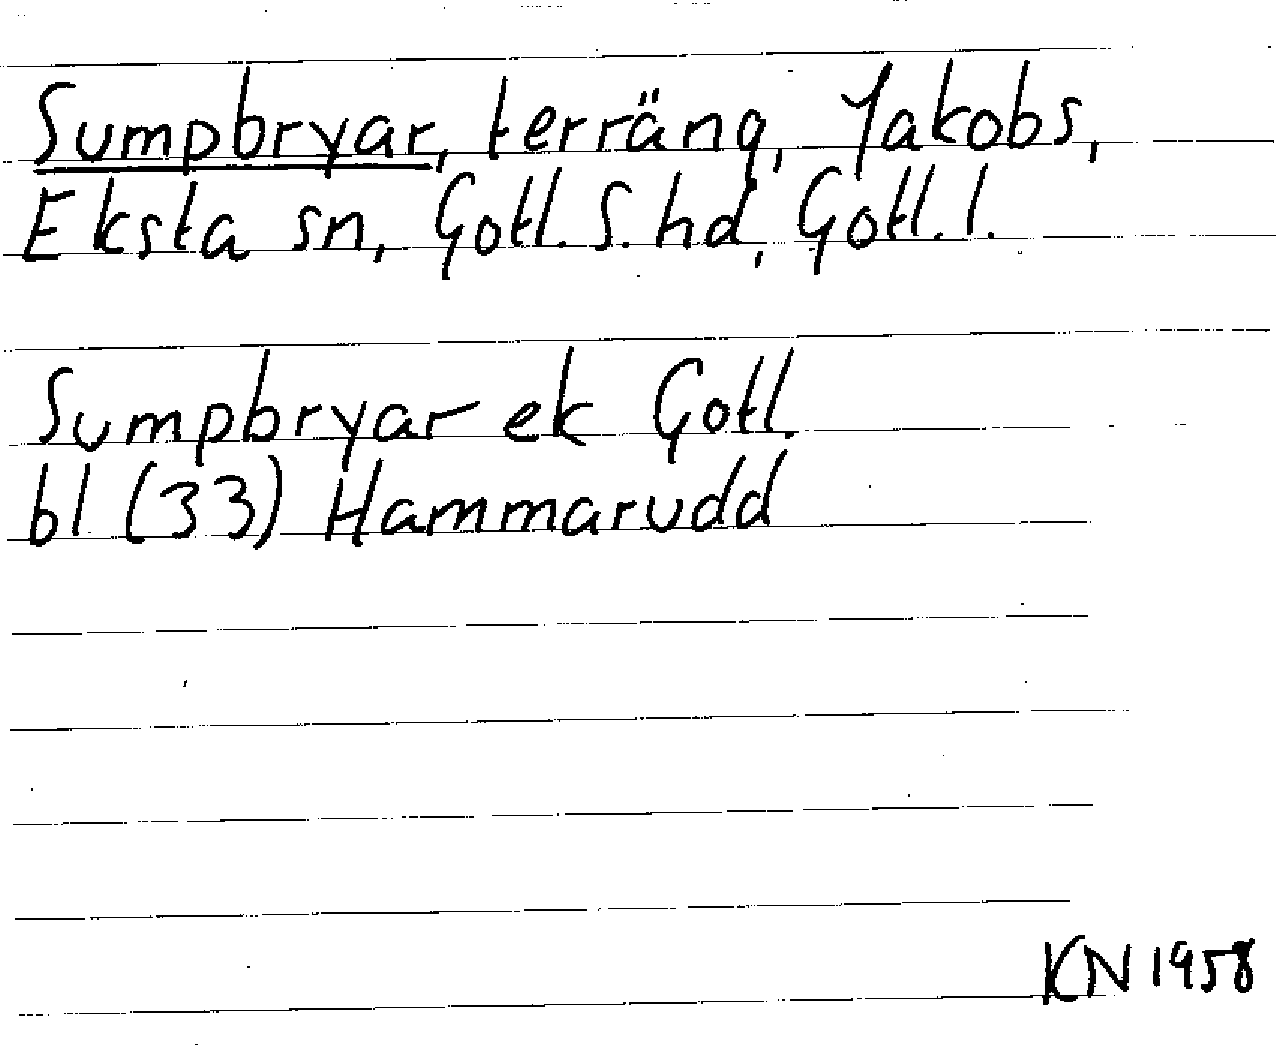 Sumpbryar, terräng, Jakobs,
Eksta sn, Gotl. S. hd, Gotl. l.
Sumpbryar ek Gotl.
bl (33) Hammarudd
KN 1958